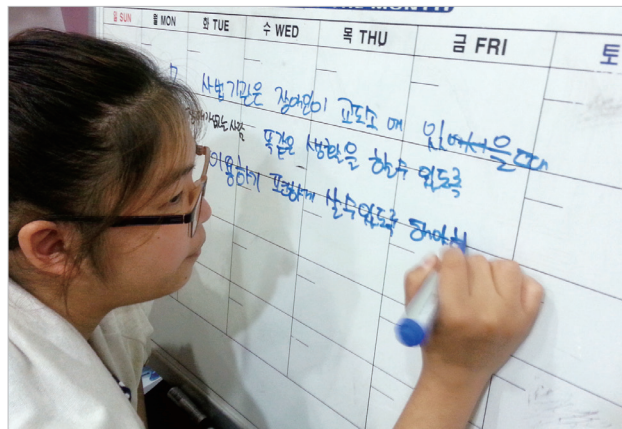 THE MONTH
일 SUN 월 MON 화 TUE 수 WED 목 THU 금 FRI 토
사법기관은 장애인이 교도소 에 있
사람 똑같은 생활을 할수 있도록
이용하기 편하게 살수있도록